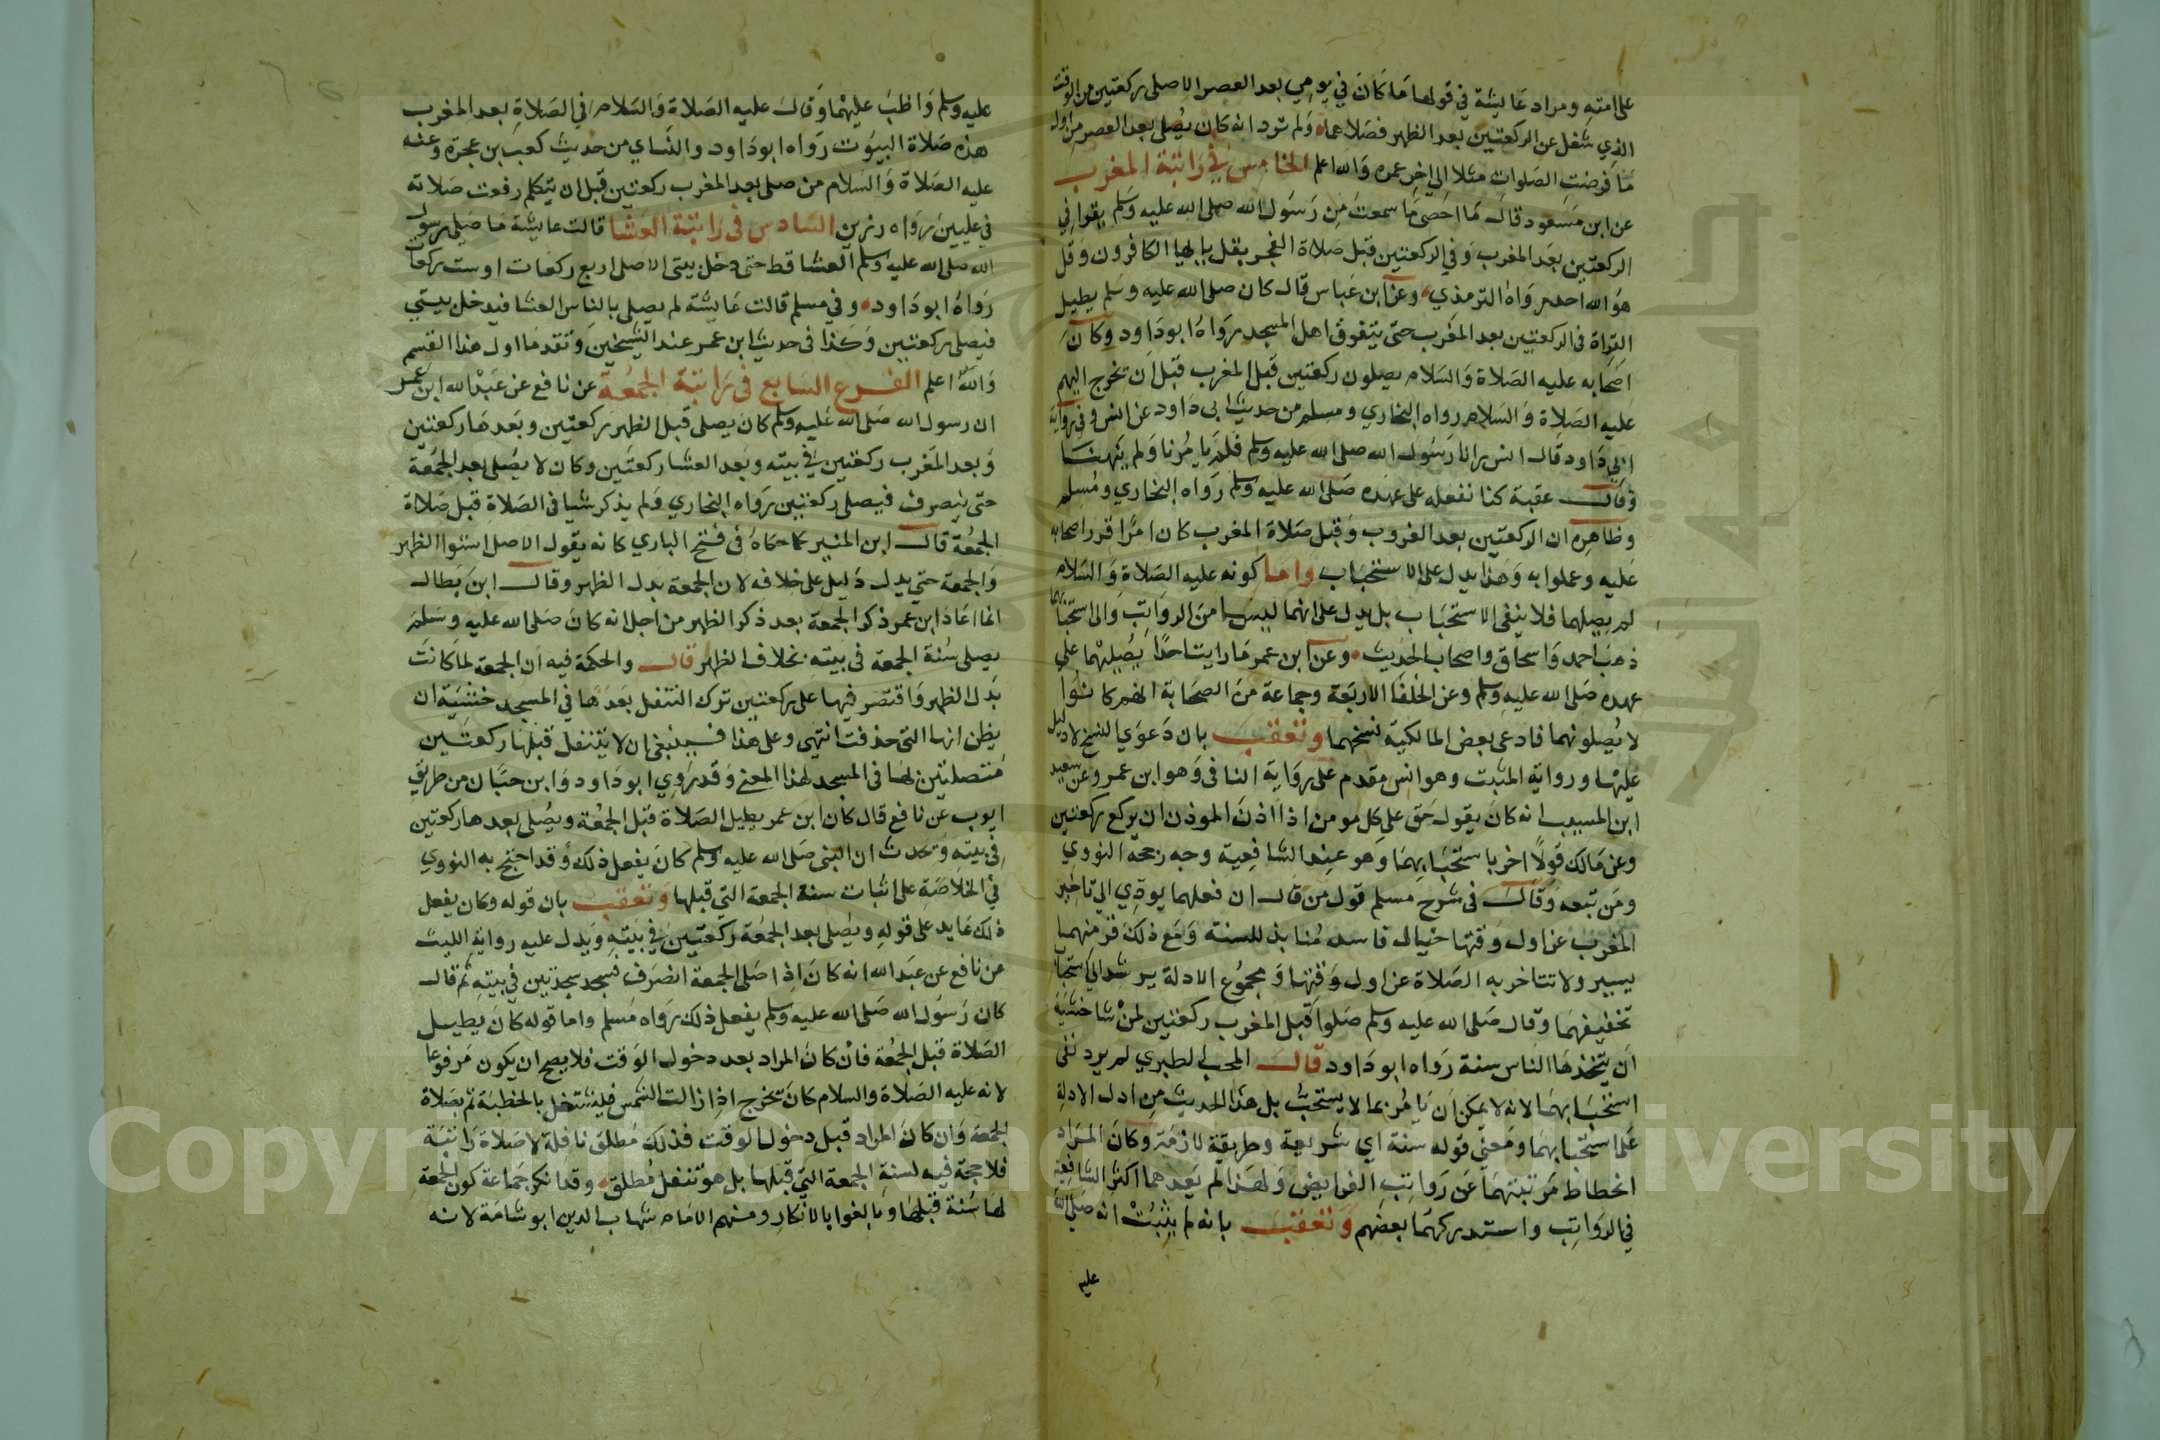 على امته ومراد عايشة في قولها ما كان في يومي بعد العصر الا صلى ركعتين من الوقت
الذي شغل عن الركعتين بعد الظهر فصلاهما ولم ترد انه كان يصلي بعد العصر من اول
ما فرضت الصلوات مثلا الى اخر عمره والله اعلم الخامس في راتبة المغرب
عن ابن مسعود قال ما احصى ما سمعت من رسول الله صلى الله عليه وسلم يقرا في
الركعتين بعد المغرب وفي الركعتين قبل صلاة الفجر بقل يا ايها الكافرون وقل
هو الله احد رواه الترمذي وعن ابن عباس قال كان صلى الله عليه وسلم يطيل
القراة في الركعتين بعد المغرب حتى يتفرق اهل المسجد رواه ابو داود وكان
اصحابه عليه الصلاة والسلام يصلون ركعتين قبل المغرب قبل ان يخرج اليهم
عليه الصلاة والسلام رواه البخاري ومسلم من حديث ابى داود عن انس وفي رواية
ابي داود قال انس رانا رسول الله صلى الله عليه وسلم فلم يامرنا ولم ينهنا
وقال عقبة كنا نفعله على عهده صلى الله عليه وسلم رواه البخاري ومسلم
وظاهره ان الركعتين بعد الغروب وقبل صلاة المغرب كان امرا قرر اصحابه
عليه وعملوا به وهذا يدل على الاستحباب واما كونه عليه الصلاة والسلام
لم يصلهما فلا ينفى الاستحباب بل يدل على انهما ليسا من الرواتب والى استحبابهما
ذهب احمد واسحاق واصحاب الحديث وعن ابن عمر ما رايت احدا يصليهما على
عهده صلى الله عليه وسلم وعن الخلفا الاربعة وجماعة من الصحابة انهم كانوا
لا يصلونهما فادعى بعض المالكية نسخهما وتعقب بان دعوي النسخ لا دليل
عليها ورواية المثبت وهو انس مقدم على رواية النافى وهو ابن عمر وعن سعيد
ابن المسيب انه كان يقول حق على كل مومن اذا اذن الموذن ان يركع ركعتين
وعن مالك قولا اخر باستحبابهما وهو عند الشافعية وجه رجحه النووي
ومن تبعه وقال في شرح مسلم قول من قال ان فعلهما يودي الى تاخير
المغرب عن اول وقتها خيال فاسد منابذ للسنة ومع ذلك فزمنهما
يسير ولا تتاخر به الصلاة عن اول وقتها ومجموع الادلة يرشد الى استحباب
تخفيفهما وقال صلى الله عليه وسلم صلوا قبل المغرب ركعتين لمن شا خشية
ان يتخذها الناس سنة رواه ابو داود قال المحب الطبري لم يرد نفى
استحبابهما لانه لا يمكن ان يامر بما لا يستحب بل هذا الحديث من ادل الادلة
على استحبابهما ومعنى قوله سنة اي شريعة وطريقة لازمة وكان المراد
انحطاط مرتبتهما عن رواتب الفرايض ولهذا لم يعدهما اكثر الشافعية
في الرواتب واستدركهما بعضهم وتعقب بانه لم يثبت انه صلى الله
عليه
عليه وسلم واظب عليهما وقال عليه الصلاة والسلام في الصلاة بعد المغرب
هذه صلاة البيوت رواه ابو داود والنساي من حديث كعب بن عجرة وعنه
عليه الصلاة والسلام من صلى بعد المغرب ركعتين قبل ان يتكلم رفعت صلاته
في عليين رواه رزين السادس في راتبة العشا قالت عايشة ما صلى رسول
الله صلى الله عليه وسلم العشا قط حتى دخل بيتى الا صلى اربع ركعات او ست ركعات
رواه ابو داود وفي مسلم قالت عايشة ثم يصلى بالناس العشا فيدخل بيتي
فيصلى ركعتين وكذا في حديث ابن عمر عند الشيخين وتقدما اول هذا القسم
والله اعلم الفرع السابع في راتبة الجمعة عن نافع عن عبد الله ابن عمر
ان رسول الله صلى الله عليه وسلم كان يصلى قبل الظهر ركعتين وبعدها ركعتين
وبعد المغرب ركعتين في بيته وبعد العشا ركعتين وكان لا يصلى بعد الجمعة
حتى ينصرف فيصلى ركعتين رواه البخاري ولم يذكر شيا في الصلاة قبل صلاة
الجمعة قال ابن المنير كما حكاه في فتح الباري كانه يقول الاصل استوا الظهر
والجمعة حتي يدل دليل على خلافه لان الجمعة بدل الظهر وقال ابن بطال
انما اعاد ابن عمر ذكر الجمعة بعد ذكر الظهر من اجل انه كان صلى الله عليه وسلم
يصلى سنة الجمعة في بيته بخلاف الظهر قال والحكمة فيه ان الجمعة لما كانت
بدل الظهر واقتصر فيها على ركعتين ترك التنفل بعدها في المسجد خشية ان
يظن انها التى حذفت انتهى وعلى هذا فينبغى ان لا يتنفل قبلها ركعتين
متصلتين لها في المسجد لهذا المعنى وقد روي ابو داود وابن حبان من طريق
ايوب عن نافع قال كان ابن عمر يطيل الصلاة قبل الجمعة ويصلى بعدها ركعتين
في بيته وتحدث ان النبي صلى الله عليه وسلم كان يفعل ذلك وقد احتج به النووي
في الخلاصة على اثبات سنة الجمعة التي قبلها وتعقب بان قوله وكان يفعل
ذلك عايد على قوله ويصلى بعد الجمعة ركعتين في بيته ويدل عليه رواية الليث
عن نافع عن عبد الله انه كان اذا صلى الجمعة انصرف فسجد سجدتين في بيته ثم قال
كان رسول الله صلى الله عليه وسلم يفعل ذلك رواه مسلم واما قوله كان يطيل
الصلاة قبل الجمعة فان كان المراد بعد دخول الوقت فلا يصح ان يكون مرفوعا
لانه عليه الصلاة والسلام كان يخرج اذا زالت الشمس فيشتغل بالخطبة ثم بصلاة
الجمعة وان كان المراد قبل دخول الوقت فذلك مطلق نافلة لا صلاة راتبة
فلا حجة فيه لسنة الجمعة التي قبلها بل هو تنفل مطلق وقد انكر جماعة كون الجمعة
لها سنة قبلها وبالغوا بالانكار ومنهم الامام شهاب الدين ابو شامة لانه